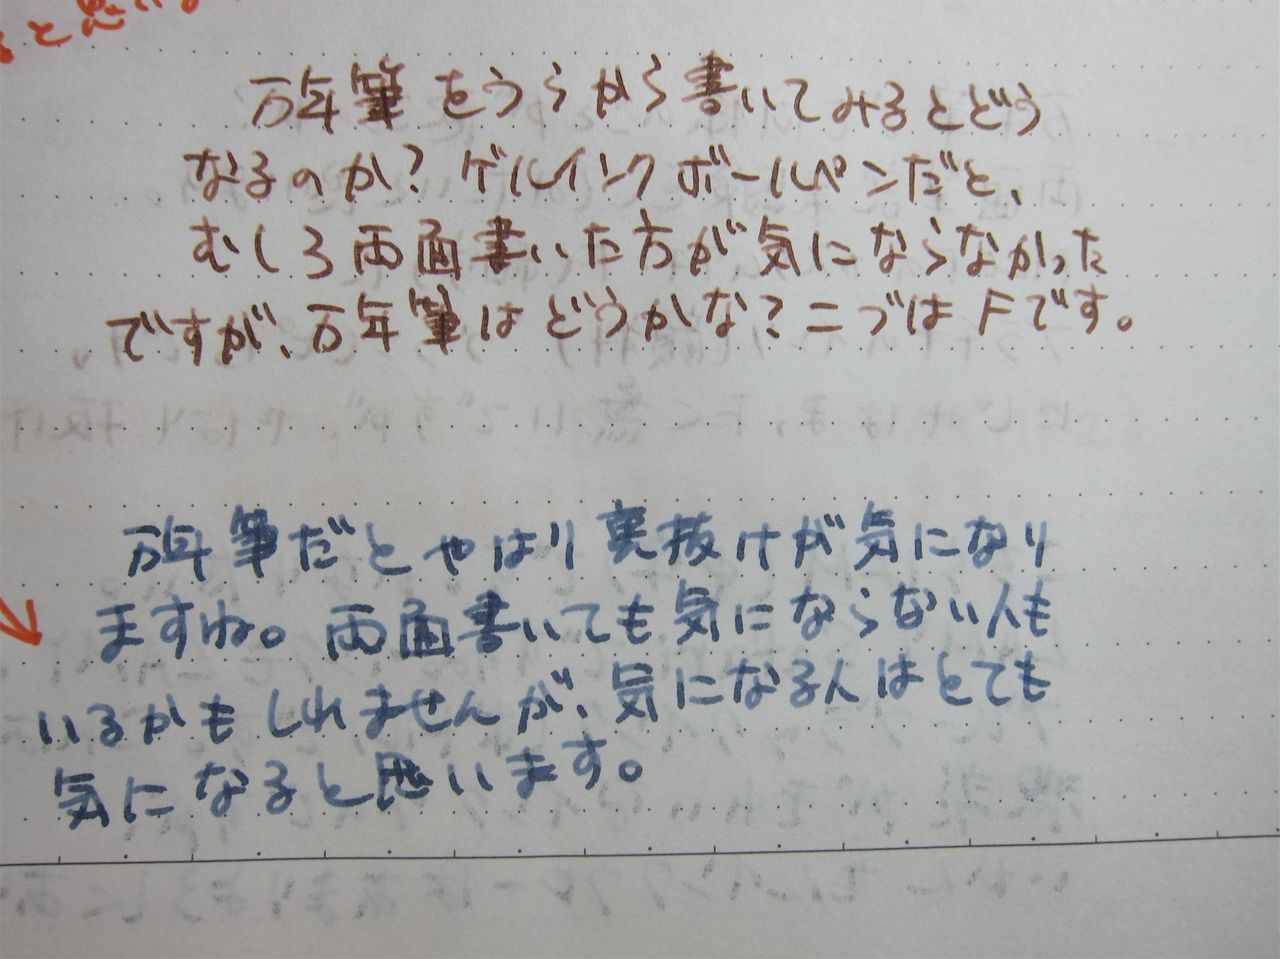 と思いま
万年筆をうらから書いてみるとどう
なるのか？ゲルインクボールペンだと、
むしろ両面書いた方が気にならなかった
ですが、万年筆はどうかな？ニブはFです。
万年筆だとやはり裏抜けが気になり
ますね。両面書いても気にならない人も
いるかもしれませんが、気になる人はとても
気になると思います。